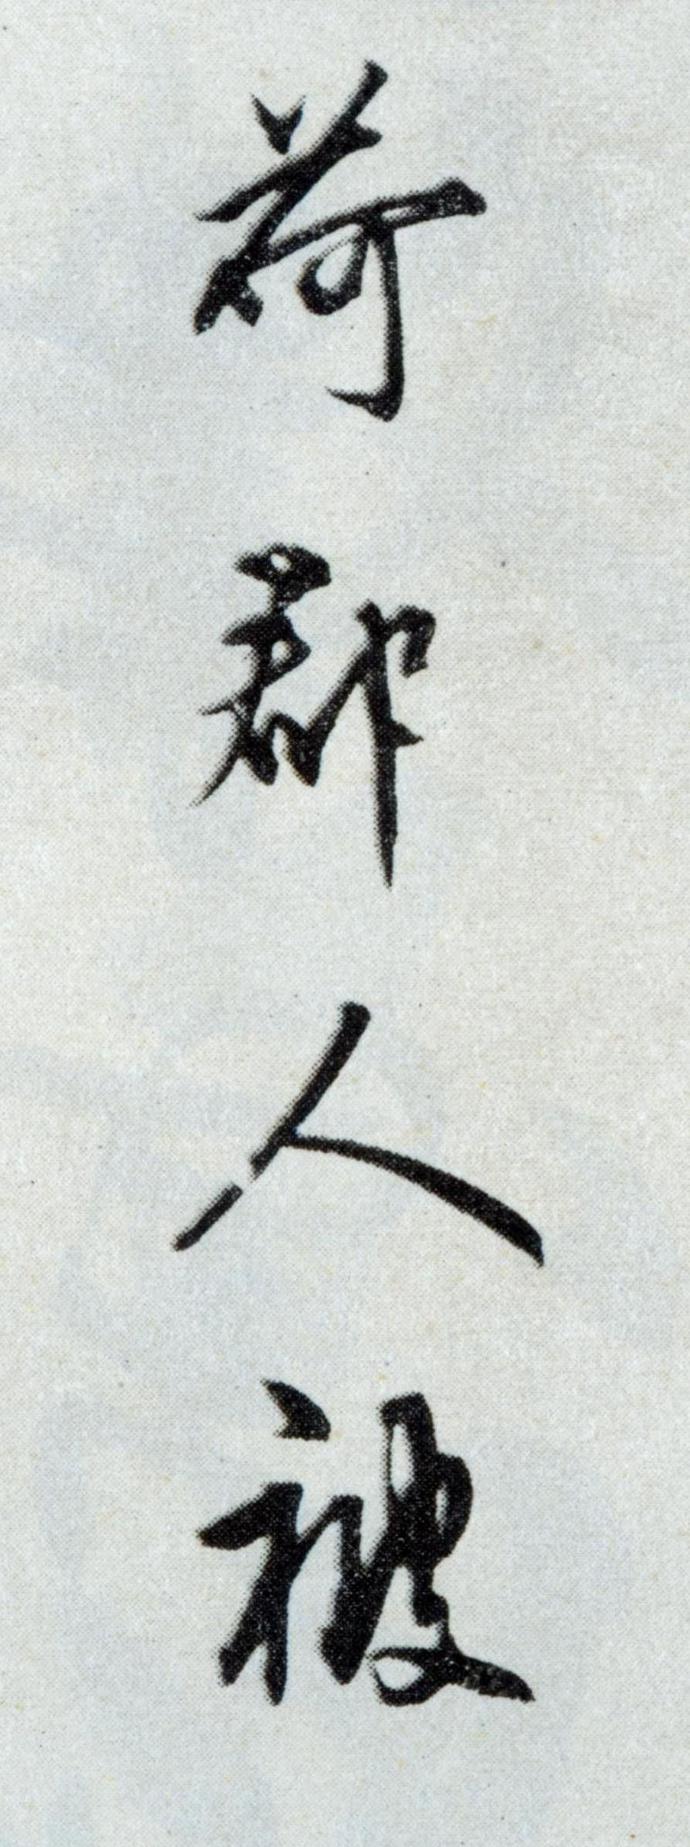 荷郡人被